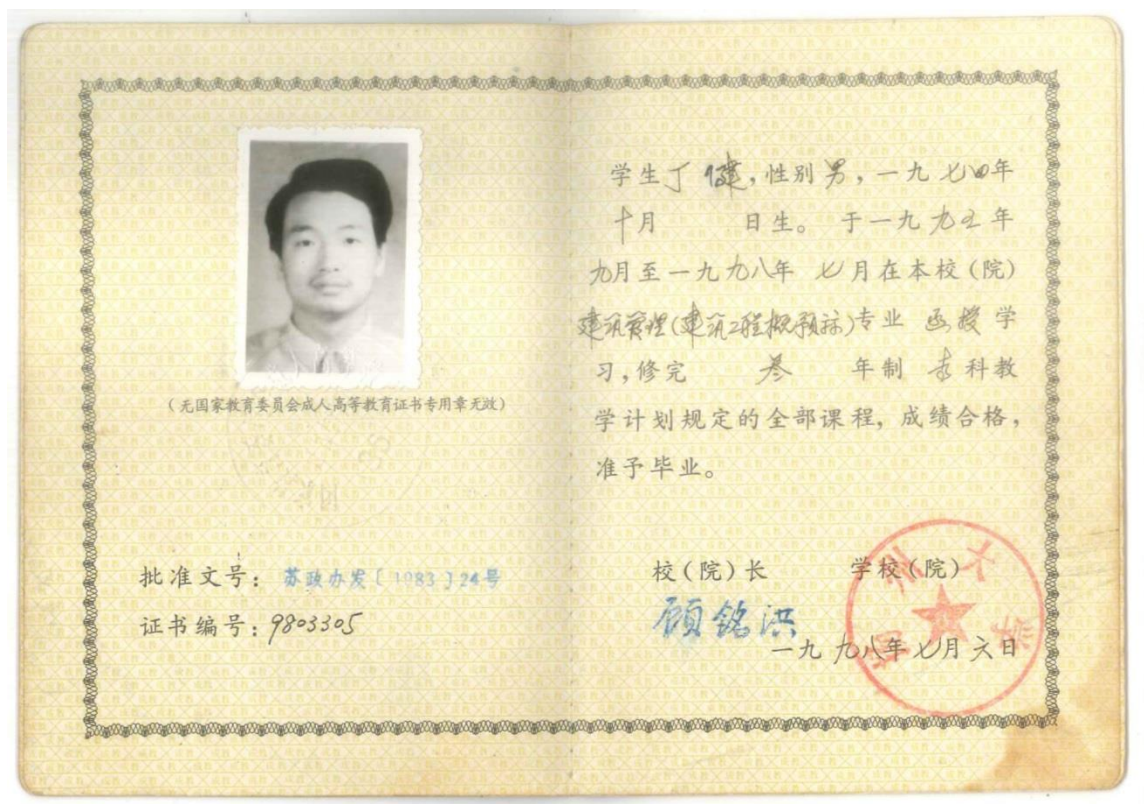 (无国家教育委员会成人高等教育证书专用章无效)
批准文号：苏政办发〔1983〕24号
证书编号：9803305
学生丁健,性别男,一九七四年
十月 日生。于一九九五年
九月至一九九八年 七月在本校(院)
建筑管理(建筑工程概预算)专业 函授学
习,修完 叁 年制 专科教
学计划规定的全部课程,成绩合格,
准予毕业。
校(院)长 学校(院)
顾铭洪
一九九八年七月六日